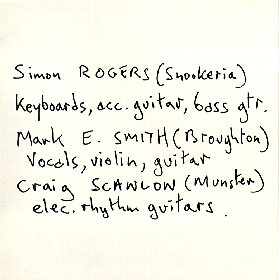 Simon ROGERS (Snookeria)
Keyboards, acc. guitar, bass gtr.
Mark E. SMITH (Broughton)
Vocals, violin, guitar
Craig SCANLON (Munster)
elec. rhythm guitars.